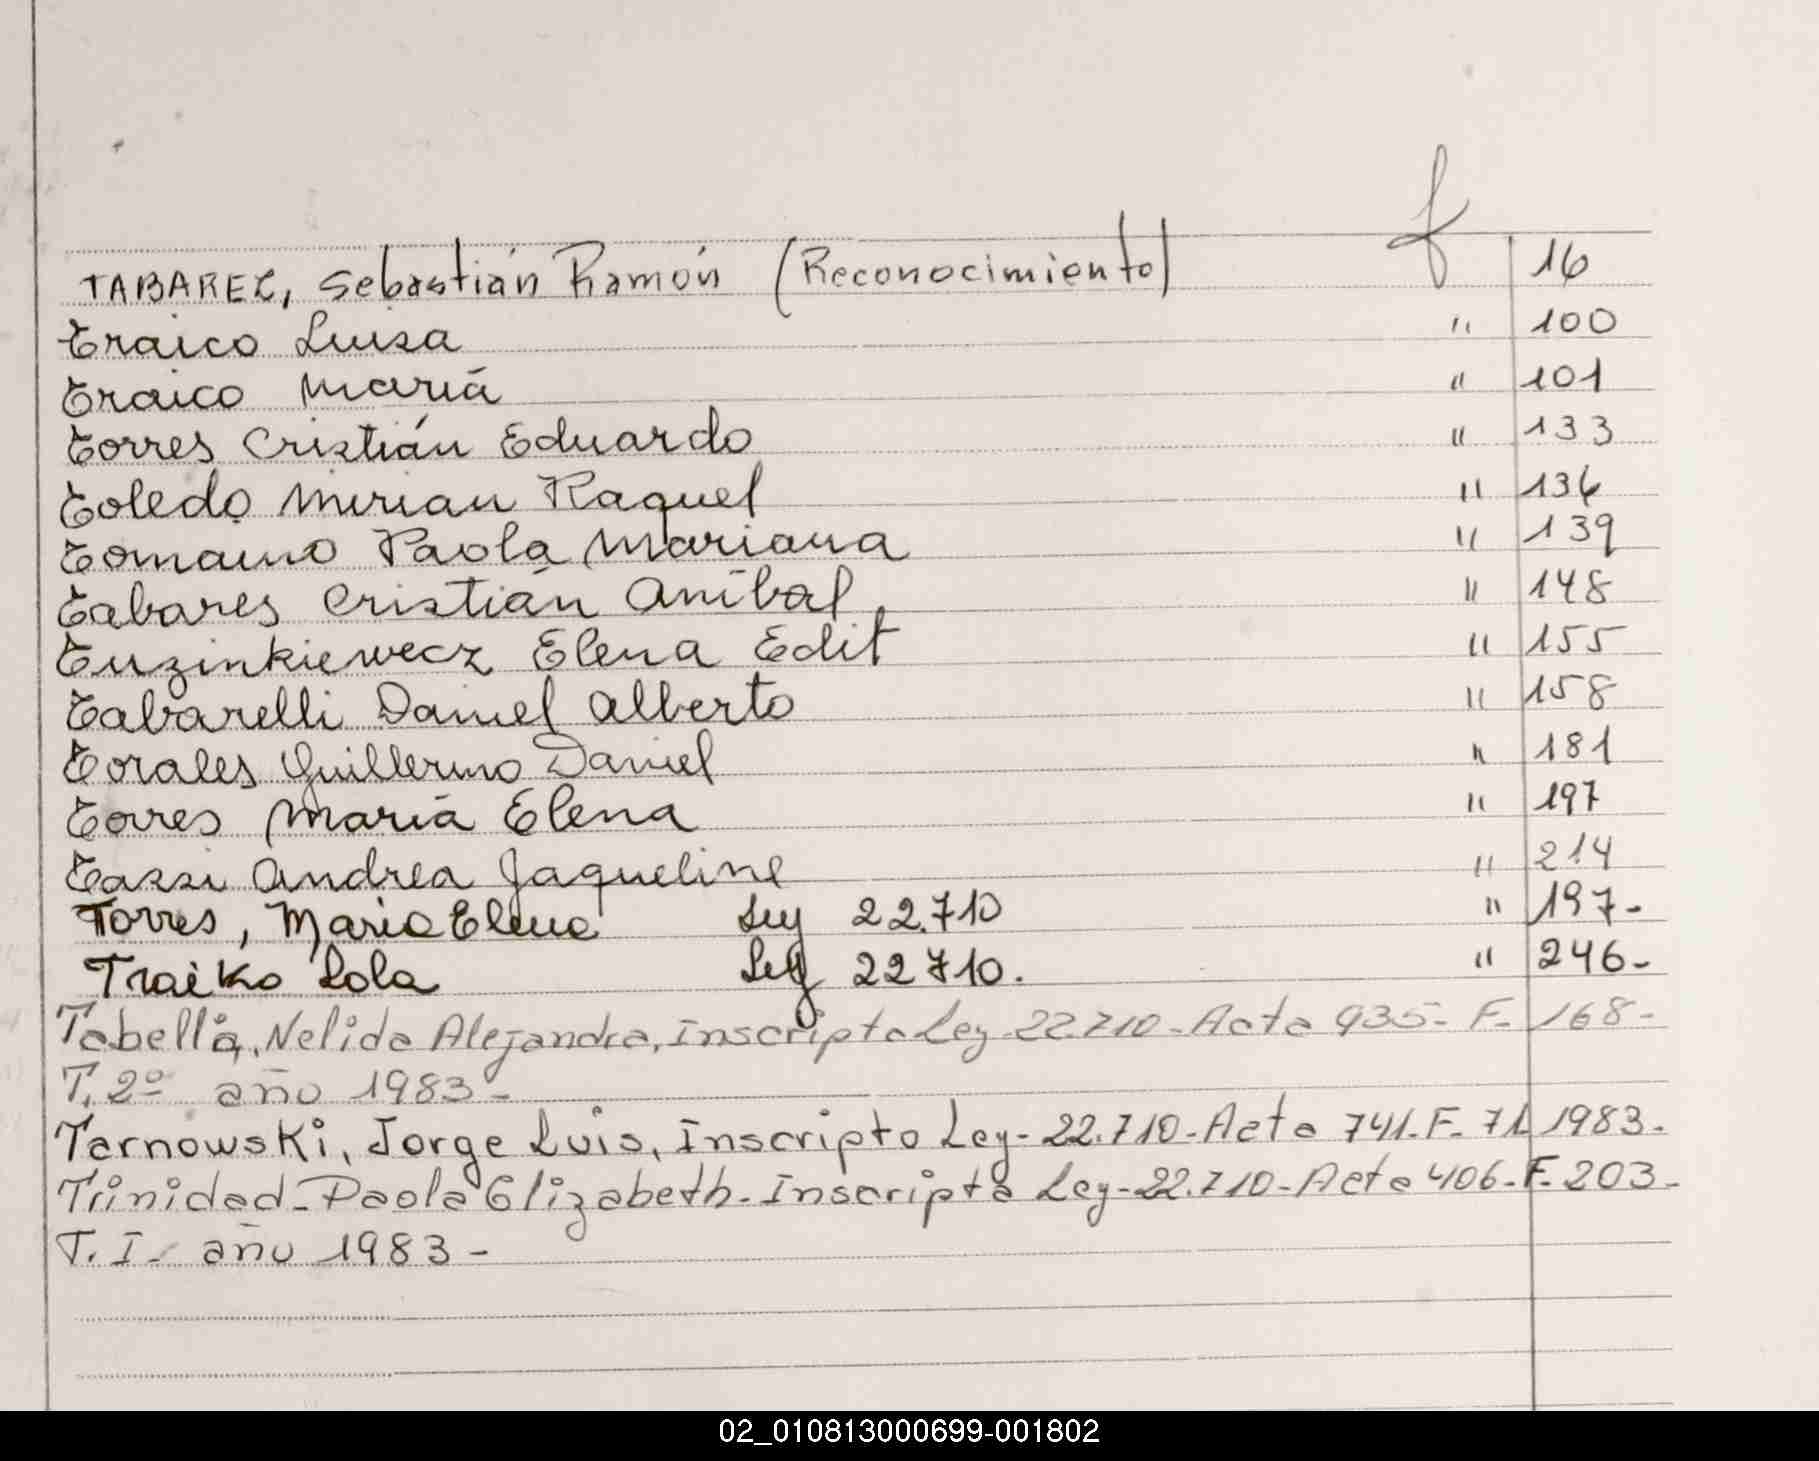 f
TABAREZ, Sebastián Ramón (Reconocimiento) 16
Traico Luisa " 100
Traico María " 101
Torres Cristián Eduardo " 133
Toledo Mirian Raquel " 136
Tomaino Paola Mariana " 139
Tabares Cristián Aníbal " 148
Tuzinkiewecz Elena Edit " 155
Tabarelli Daniel Alberto " 158
Torales Guillermo Daniel " 181
Torres María Elena " 197
Tassi Andrea Jaqueline " 214
Torres, Maria Elena Ley 22.710 " 197-
Traiko Lola Ley 22710. " 246-
Tabella, Nelida Alejandra, Inscripta Ley-22.710-Acta 935- F- 168-
T. 2º año 1983-
Tarnowski, Jorge Luis, Inscripto Ley-22.710-Acta 741-F-71 1983-
Trinidad-Paola Elizabeth-Inscripta Ley-22.710-Acta 406-F-203-
T. I- año 1983-
02_010813000699-001802